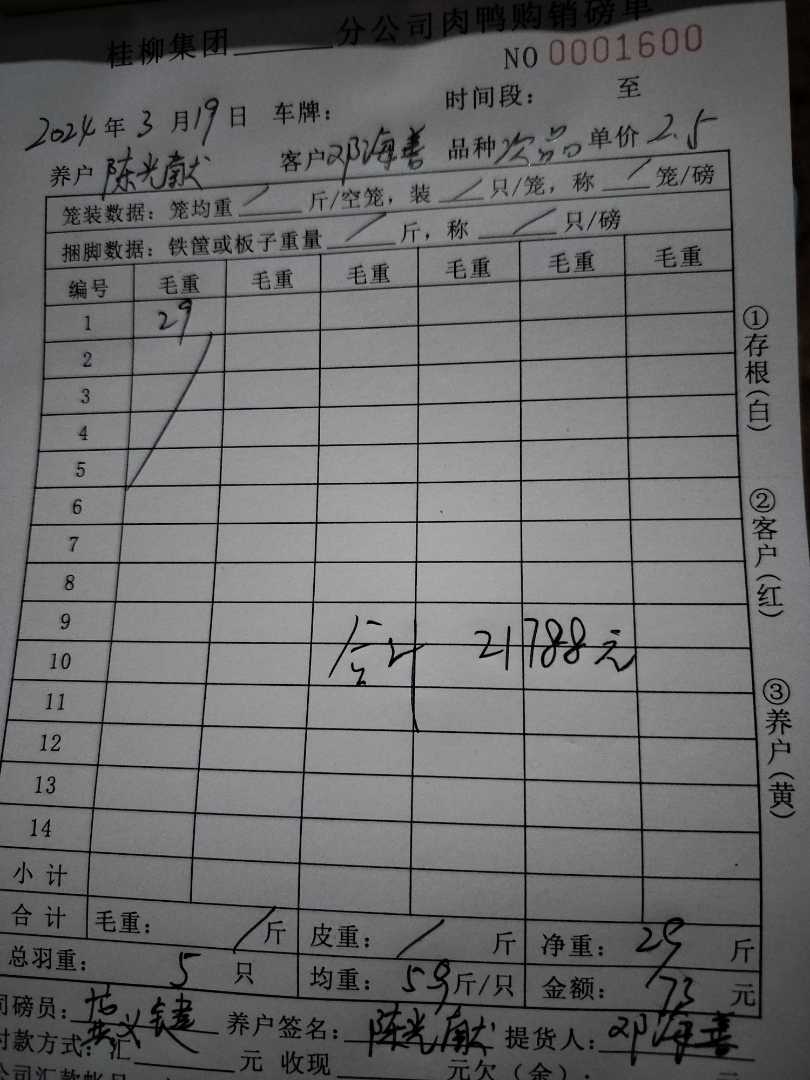 桂柳集团______分公司肉鸭购销磅单
NO 0001600
2024年3月19日 车牌: 时间段: 至
养户 陈光献 客户 邓海善 品种 次品 单价 2.5
笼装数据: 笼均重 / 斤/空笼, 装 / 只/笼, 称 / 笼/磅
捆脚数据: 铁筐或板子重量 / 斤, 称 / 只/磅
编号 毛重 毛重 毛重 毛重 毛重 毛重
1 29
2
3
4
5
6
7
8
9
10
合计 21788元
11
12
13
14
小计
合计 毛重: / 斤 皮重: / 斤 净重: 29 斤
总羽重: 5 只 均重: 5.9 斤/只 金额: 73 元
司磅员: 义键 养户签名: 陈光献 提货人: 邓海善
付款方式: 汇______元 收现______元欠(余):
公司汇款帐号
①存根(白)
②客户(红)
③养户(黄)